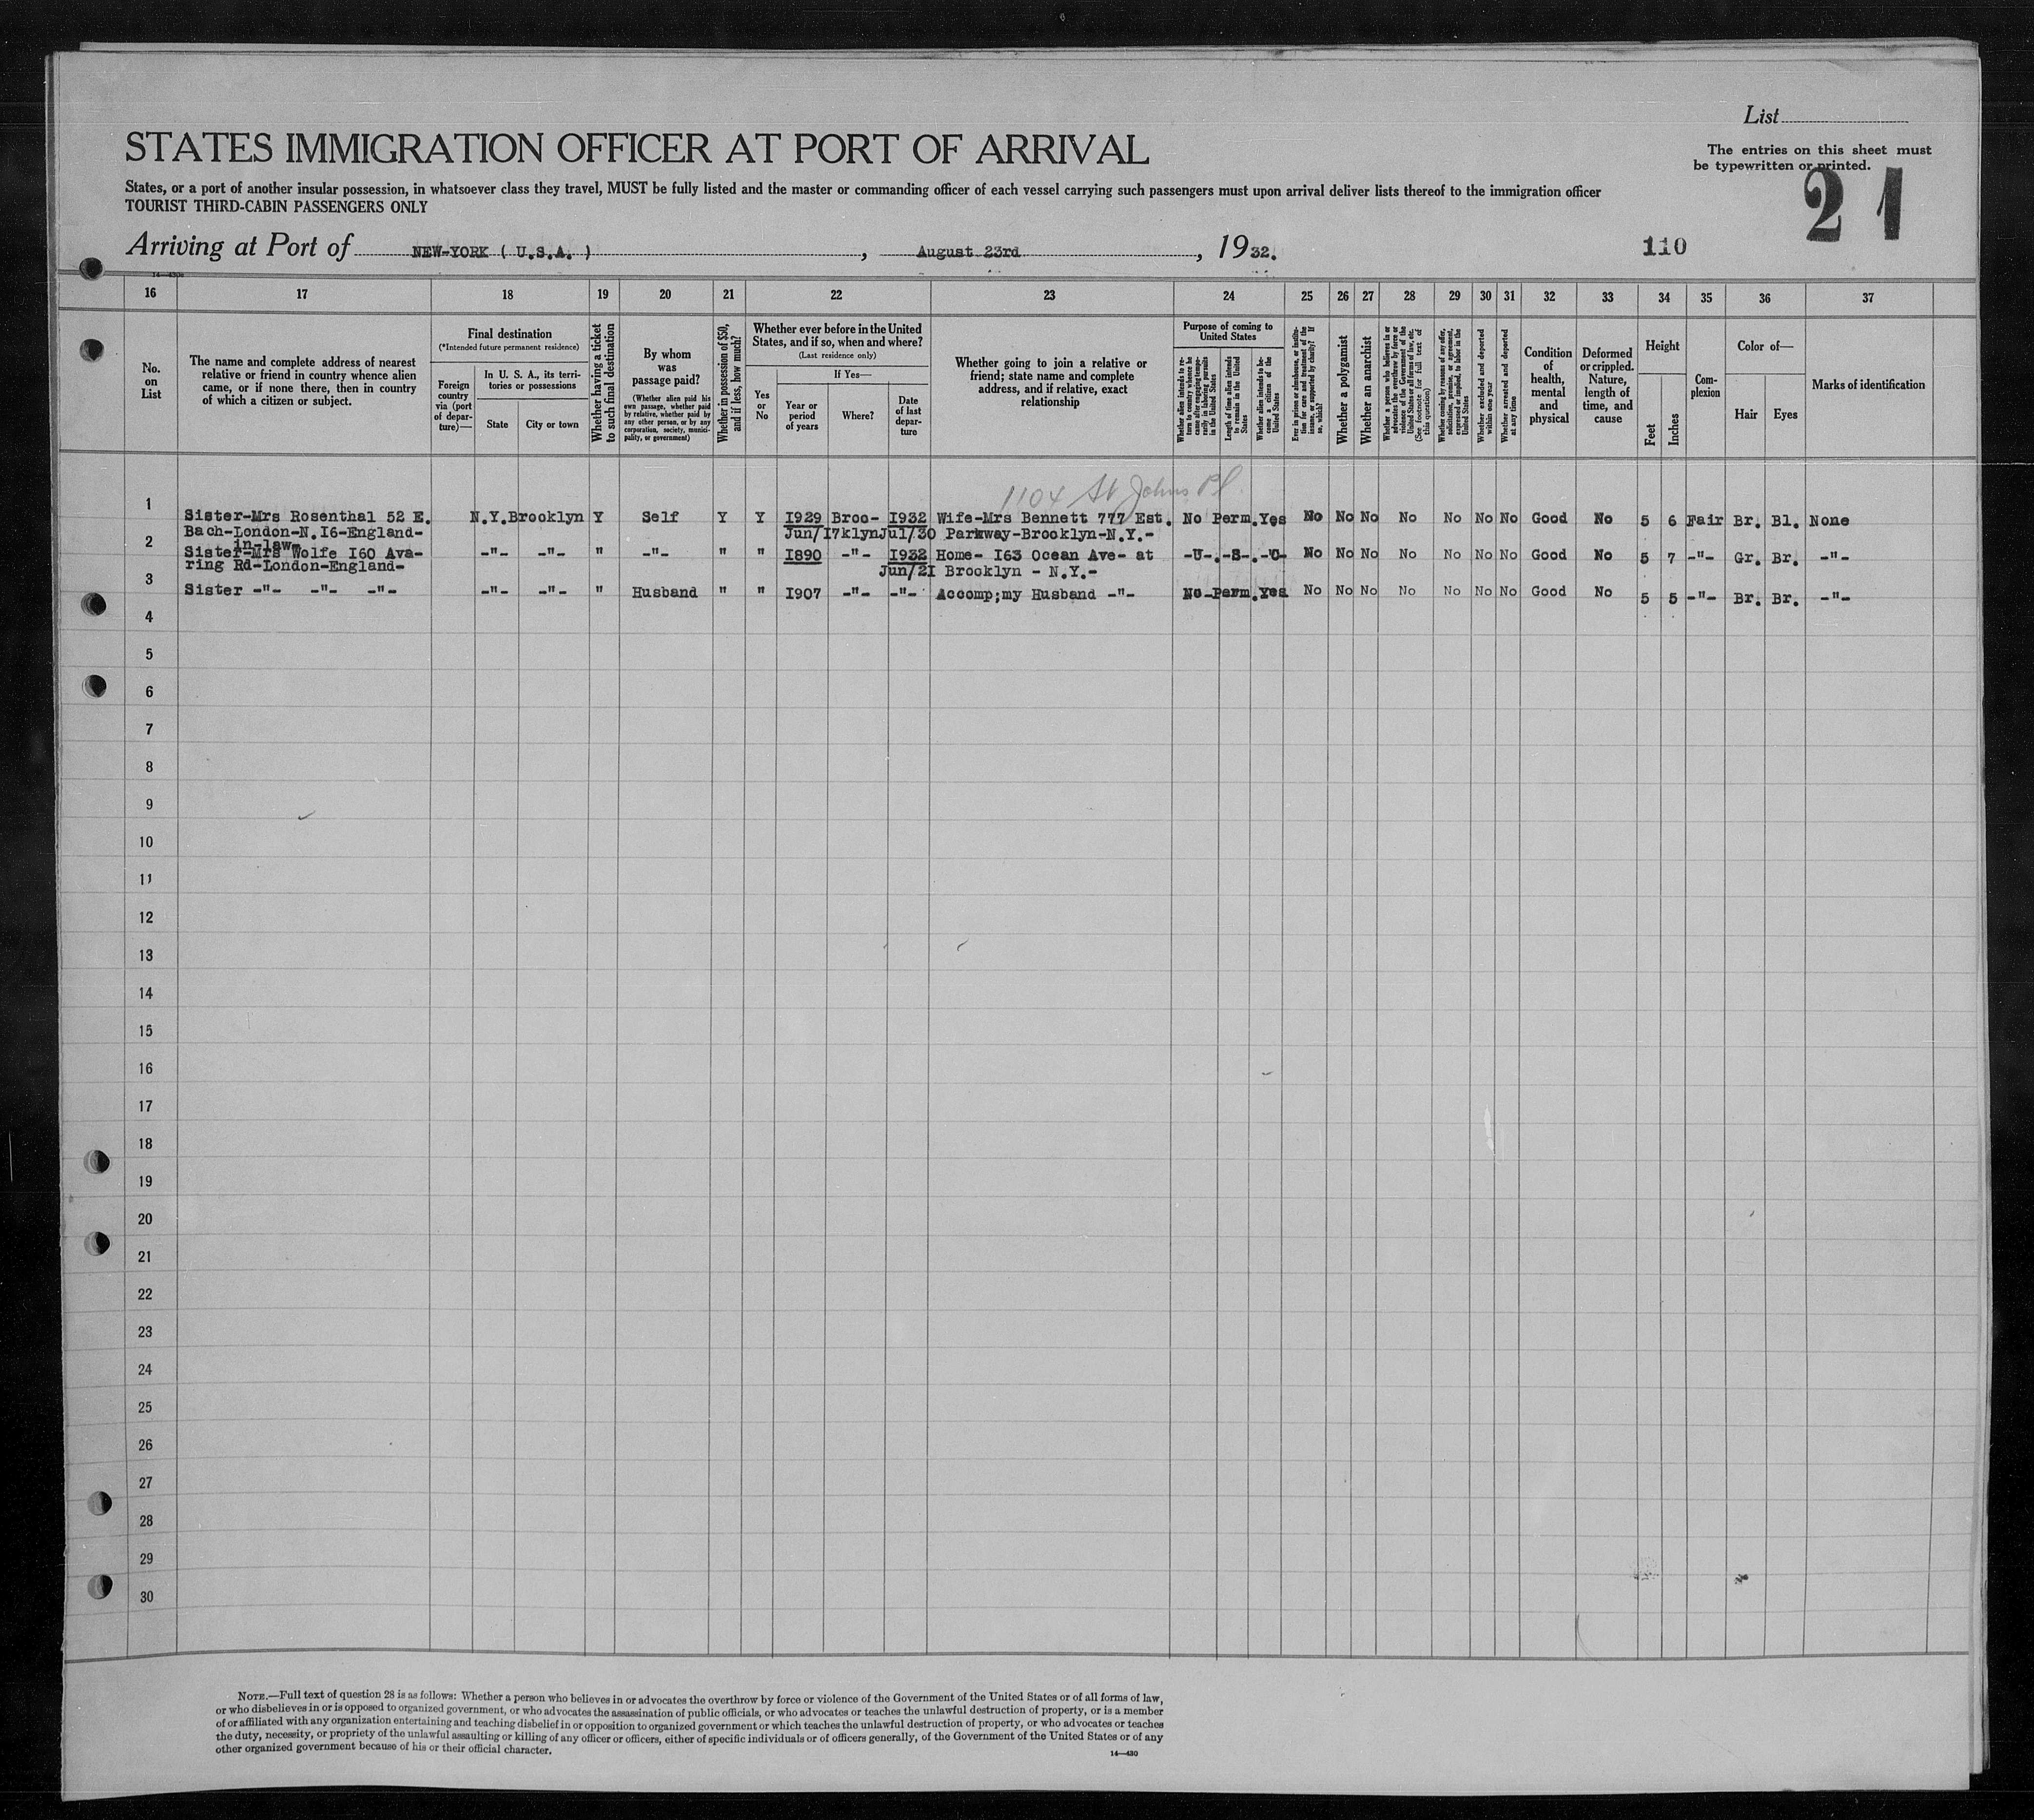 List
STATES IMMIGRATION OFFICER AT PORT OF ARRIVAL
The entries on this sheet must
be typewritten or printed.
States, or a port of another insular possession, in whatsoever class they travel, MUST be fully listed and the master or commanding officer of each vessel carrying such passengers must upon arrival deliver lists thereof to the immigration officer
TOURIST THIRD-CABIN PASSENGERS ONLY
21
Arriving at Port of NEW-YORK ( U.S.A. ) , August 23rd , 19 32. 110
16 17 18 19 20 21 22 23 24 25 26 27 28 29 30 31 32 33 34 35 36 37
No. on List
The name and complete address of nearest relative or friend in country whence alien came, or if none there, then in country of which a citizen or subject.
Final destination
(*Intended future permanent residence)
Foreign country via (port of departure)—
In U. S. A., its territories or possessions
State
City or town
Whether having a ticket to such final destination
By whom was passage paid?
(Whether alien paid his own passage, whether paid by relative, whether paid by any other person, or by any corporation, society, municipality, or government)
Whether in possession of $50, and if less, how much?
Whether ever before in the United States, and if so, when and where?
(Last residence only)
Yes or No
If Yes—
Year or period of years
Where?
Date of last departure
Whether going to join a relative or friend; state name and complete address, and if relative, exact relationship
Purpose of coming to United States
Whether alien intends to return to country whence he came after engaging temporarily in laboring pursuits in the United States
Length of time alien intends to remain in the United States
Whether alien intends to become a citizen of the United States
Ever in prison or almshouse, or institution for care and treatment of the insane, or supported by charity? If so, which?
Whether a polygamist
Whether an anarchist
Whether a person who believes in or advocates the overthrow by force or violence of the Government of the United States or all forms of law, etc. (See footnote for full text of this question)
Whether coming by reasons of any offer, solicitation, promise, or agreement, expressed or implied, to labor in the United States
Whether excluded and deported within one year
Whether arrested and deported at any time
Condition of health, mental and physical
Deformed or crippled. Nature, length of time, and cause
Height
Feet
Inches
Complexion
Color of—
Hair
Eyes
Marks of identification
1104 St Johns Pl.
1 Sister-Mrs Rosenthal 52 E. N.Y. Brooklyn Y Self Y Y I929 Broo- I932 Wife-Mrs Bennett 777 Est. No Perm. Yes No No No No No No No Good No 5 6 Fair Br. Bl. None
Bach-London-N.I6-England- Jun/I7 klyn Jul/30 Parkway-Brooklyn-N.Y.-
in-law
2 Sister-Mrs Wolfe I60 Ava- -"- -"- " -"- " " I890 -"- I932 Home- I63 Ocean Ave- at -U-.-S-.-C- No No No No No No No Good No 5 7 -"- Gr. Br. -"-
ring Rd-London-England- Jun/2I Brooklyn - N.Y.-
3 Sister -"- -"- -"- -"- -"- " Husband " " I907 -"- -"- Accomp;my Husband -"- No-Perm.Yes No No No No No No No Good No 5 5 -"- Br. Br. -"-
4
5
6
7
8
9
10
11
12
13
14
15
16
17
18
19
20
21
22
23
24
25
26
27
28
29
30
NOTE.—Full text of question 28 is as follows: Whether a person who believes in or advocates the overthrow by force or violence of the Government of the United States or of all forms of law,
or who disbelieves in or is opposed to organized government, or who advocates the assassination of public officials, or who advocates or teaches the unlawful destruction of property, or is a member
of or affiliated with any organization entertaining and teaching disbelief in or opposition to organized government or which teaches the unlawful destruction of property, or who advocates or teaches
the duty, necessity, or propriety of the unlawful assaulting or killing of any officer or officers, either of specific individuals or of officers generally, of the Government of the United States or of any
other organized government because of his or their official character.
14—430